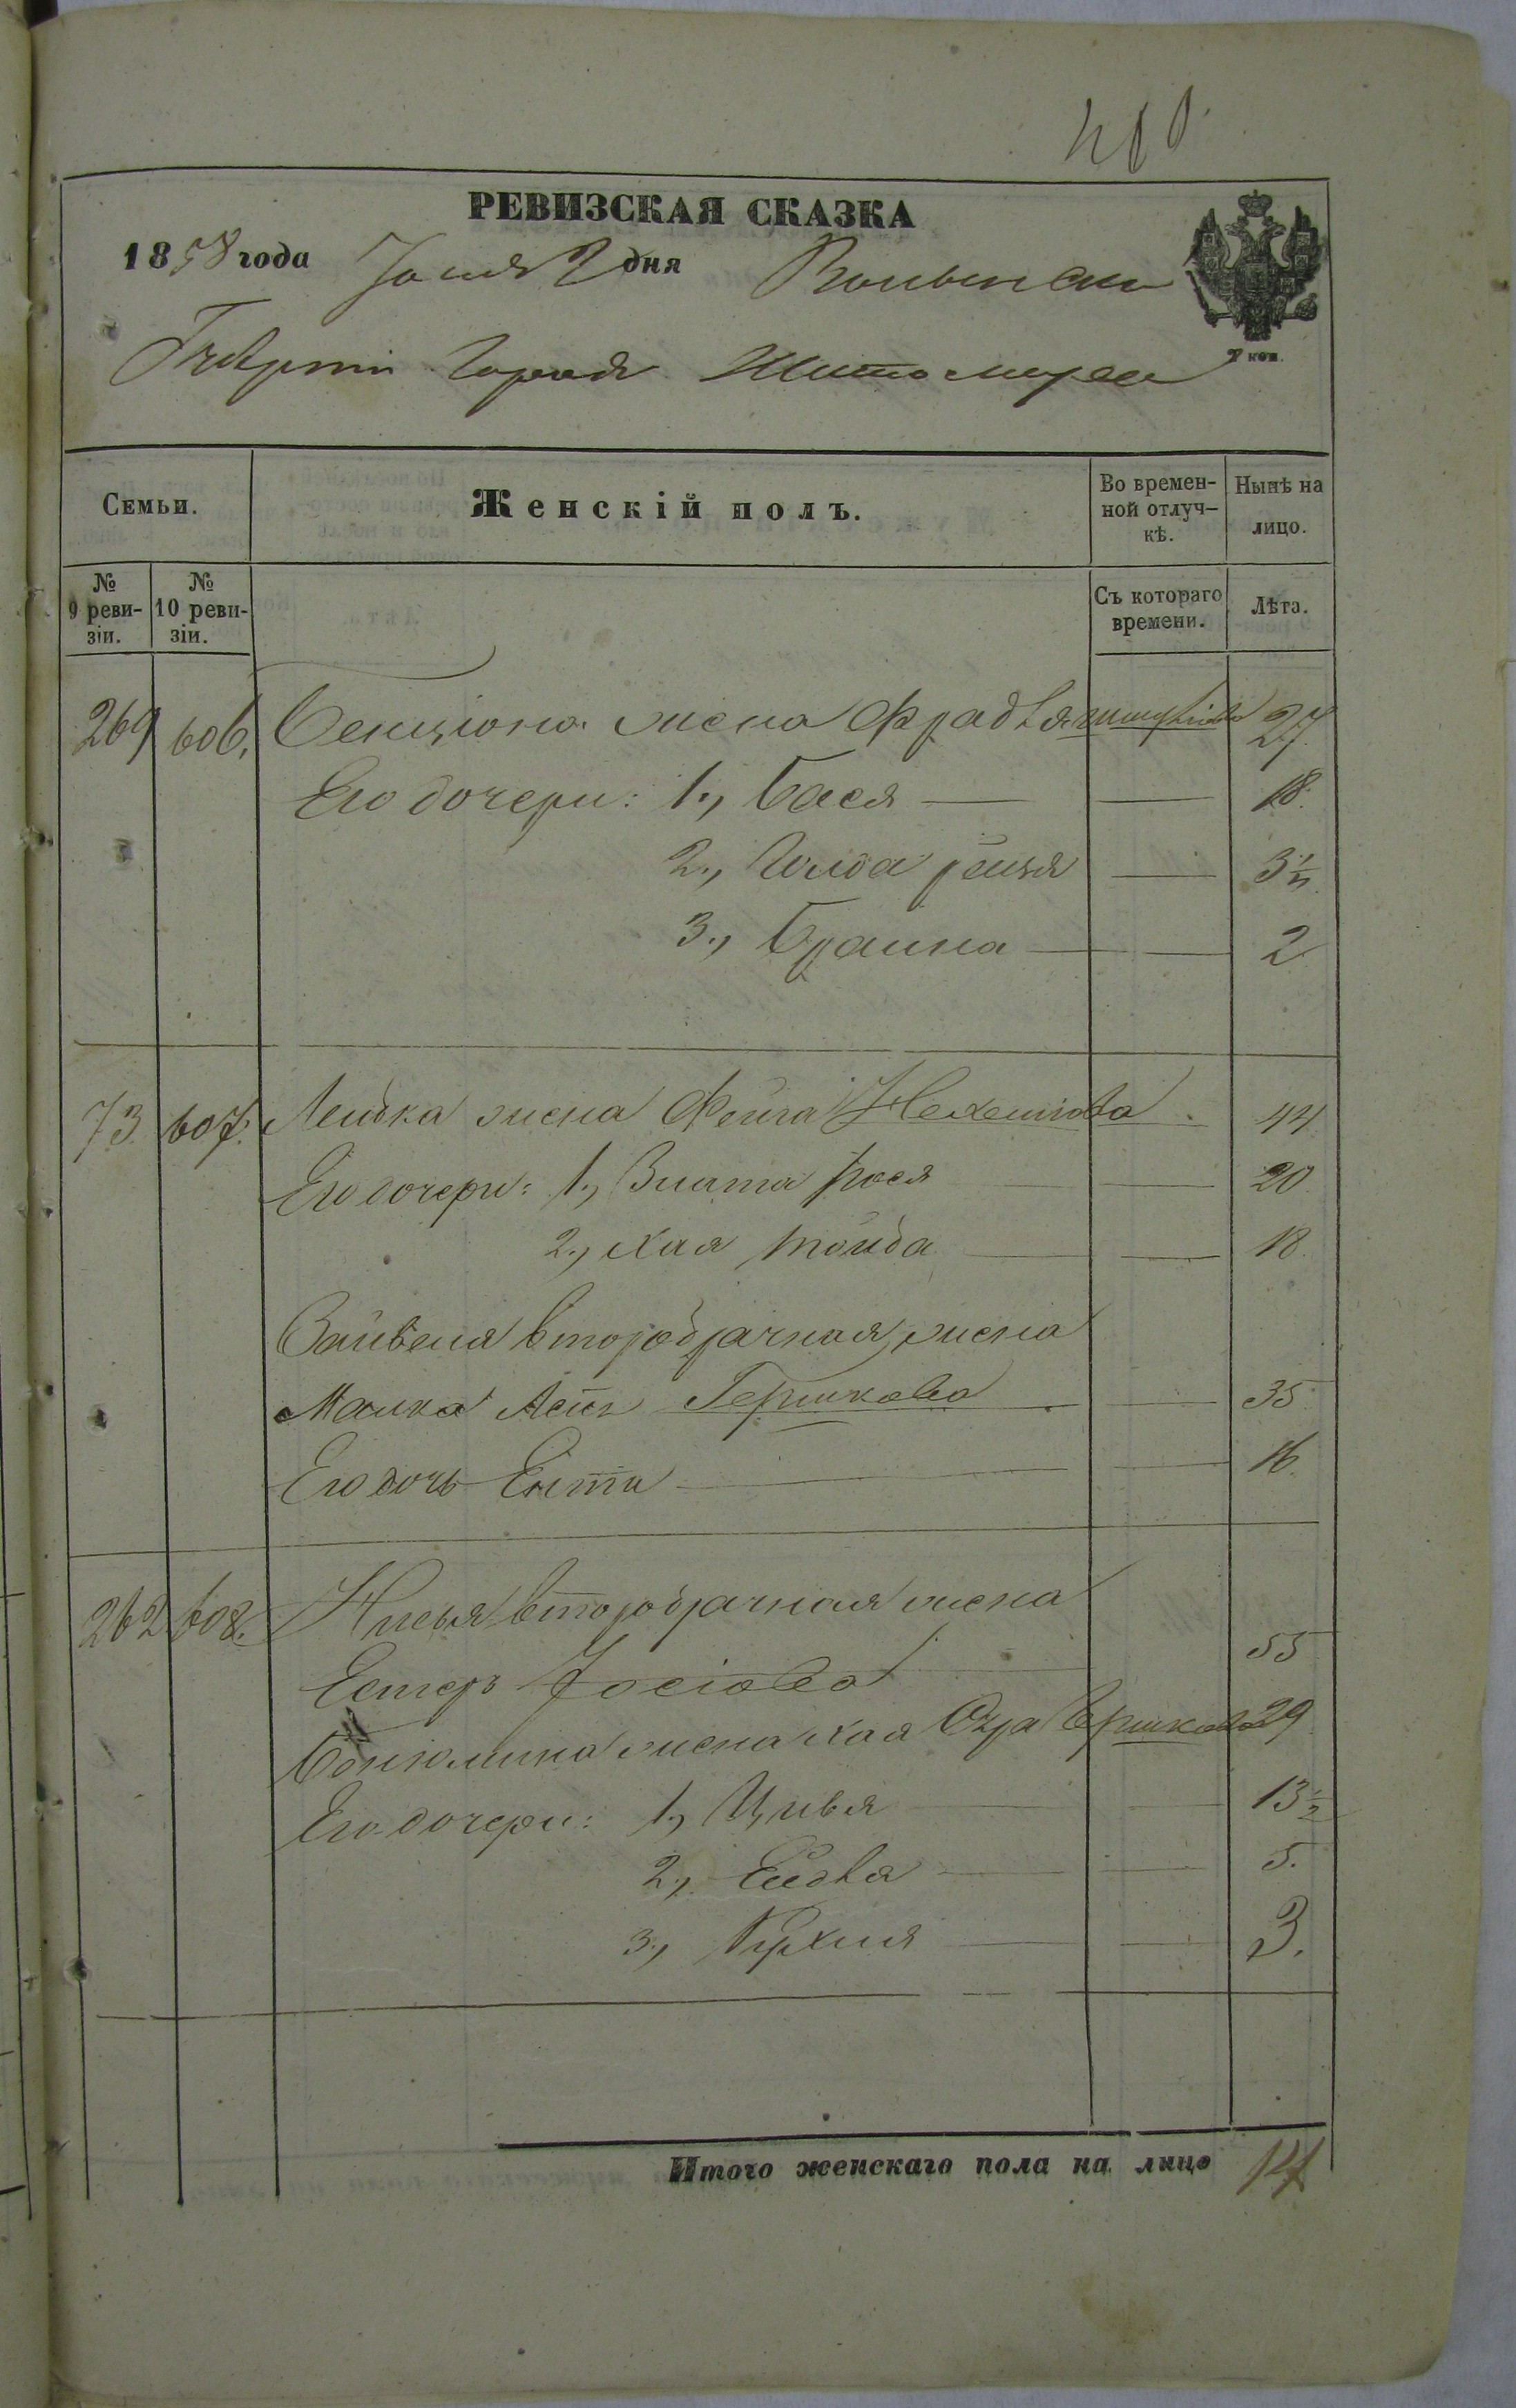 410.
РЕВИЗСКАЯ СКАЗКА
1858 года Іюня 2 дня Волынской
2 коп.
Губерніи Города Житомира
Семьи.
Женскій полъ.
Во времен-
ной отлуч-
кѣ.
Нынѣ на
лицо.
№
9 реви-
зіи.
№
10 реви-
зіи.
Съ котораго
времени.
Лѣта.
269 606. Бенціона жена Фрадля 27.
Его дочери: 1., Бася 18.
2., Голда 3½
3., Браина 2
73. 607. Лейбка жена Фейга 44
Его дочери: 1., Злата Рося 20
2., Хая Тойба 18.
Зейвеля второбрачная жена
Малка Гершкова 35.
Его дочь Ента 16.
262 608. второбрачная жена
Естеръ Іосіова 55
Беніомина жена Хая 29
Его дочери: 1., Цивья 13½
2., Ейдля 5.
3., Рухля 3.
Итого женскаго пола на лицо 14